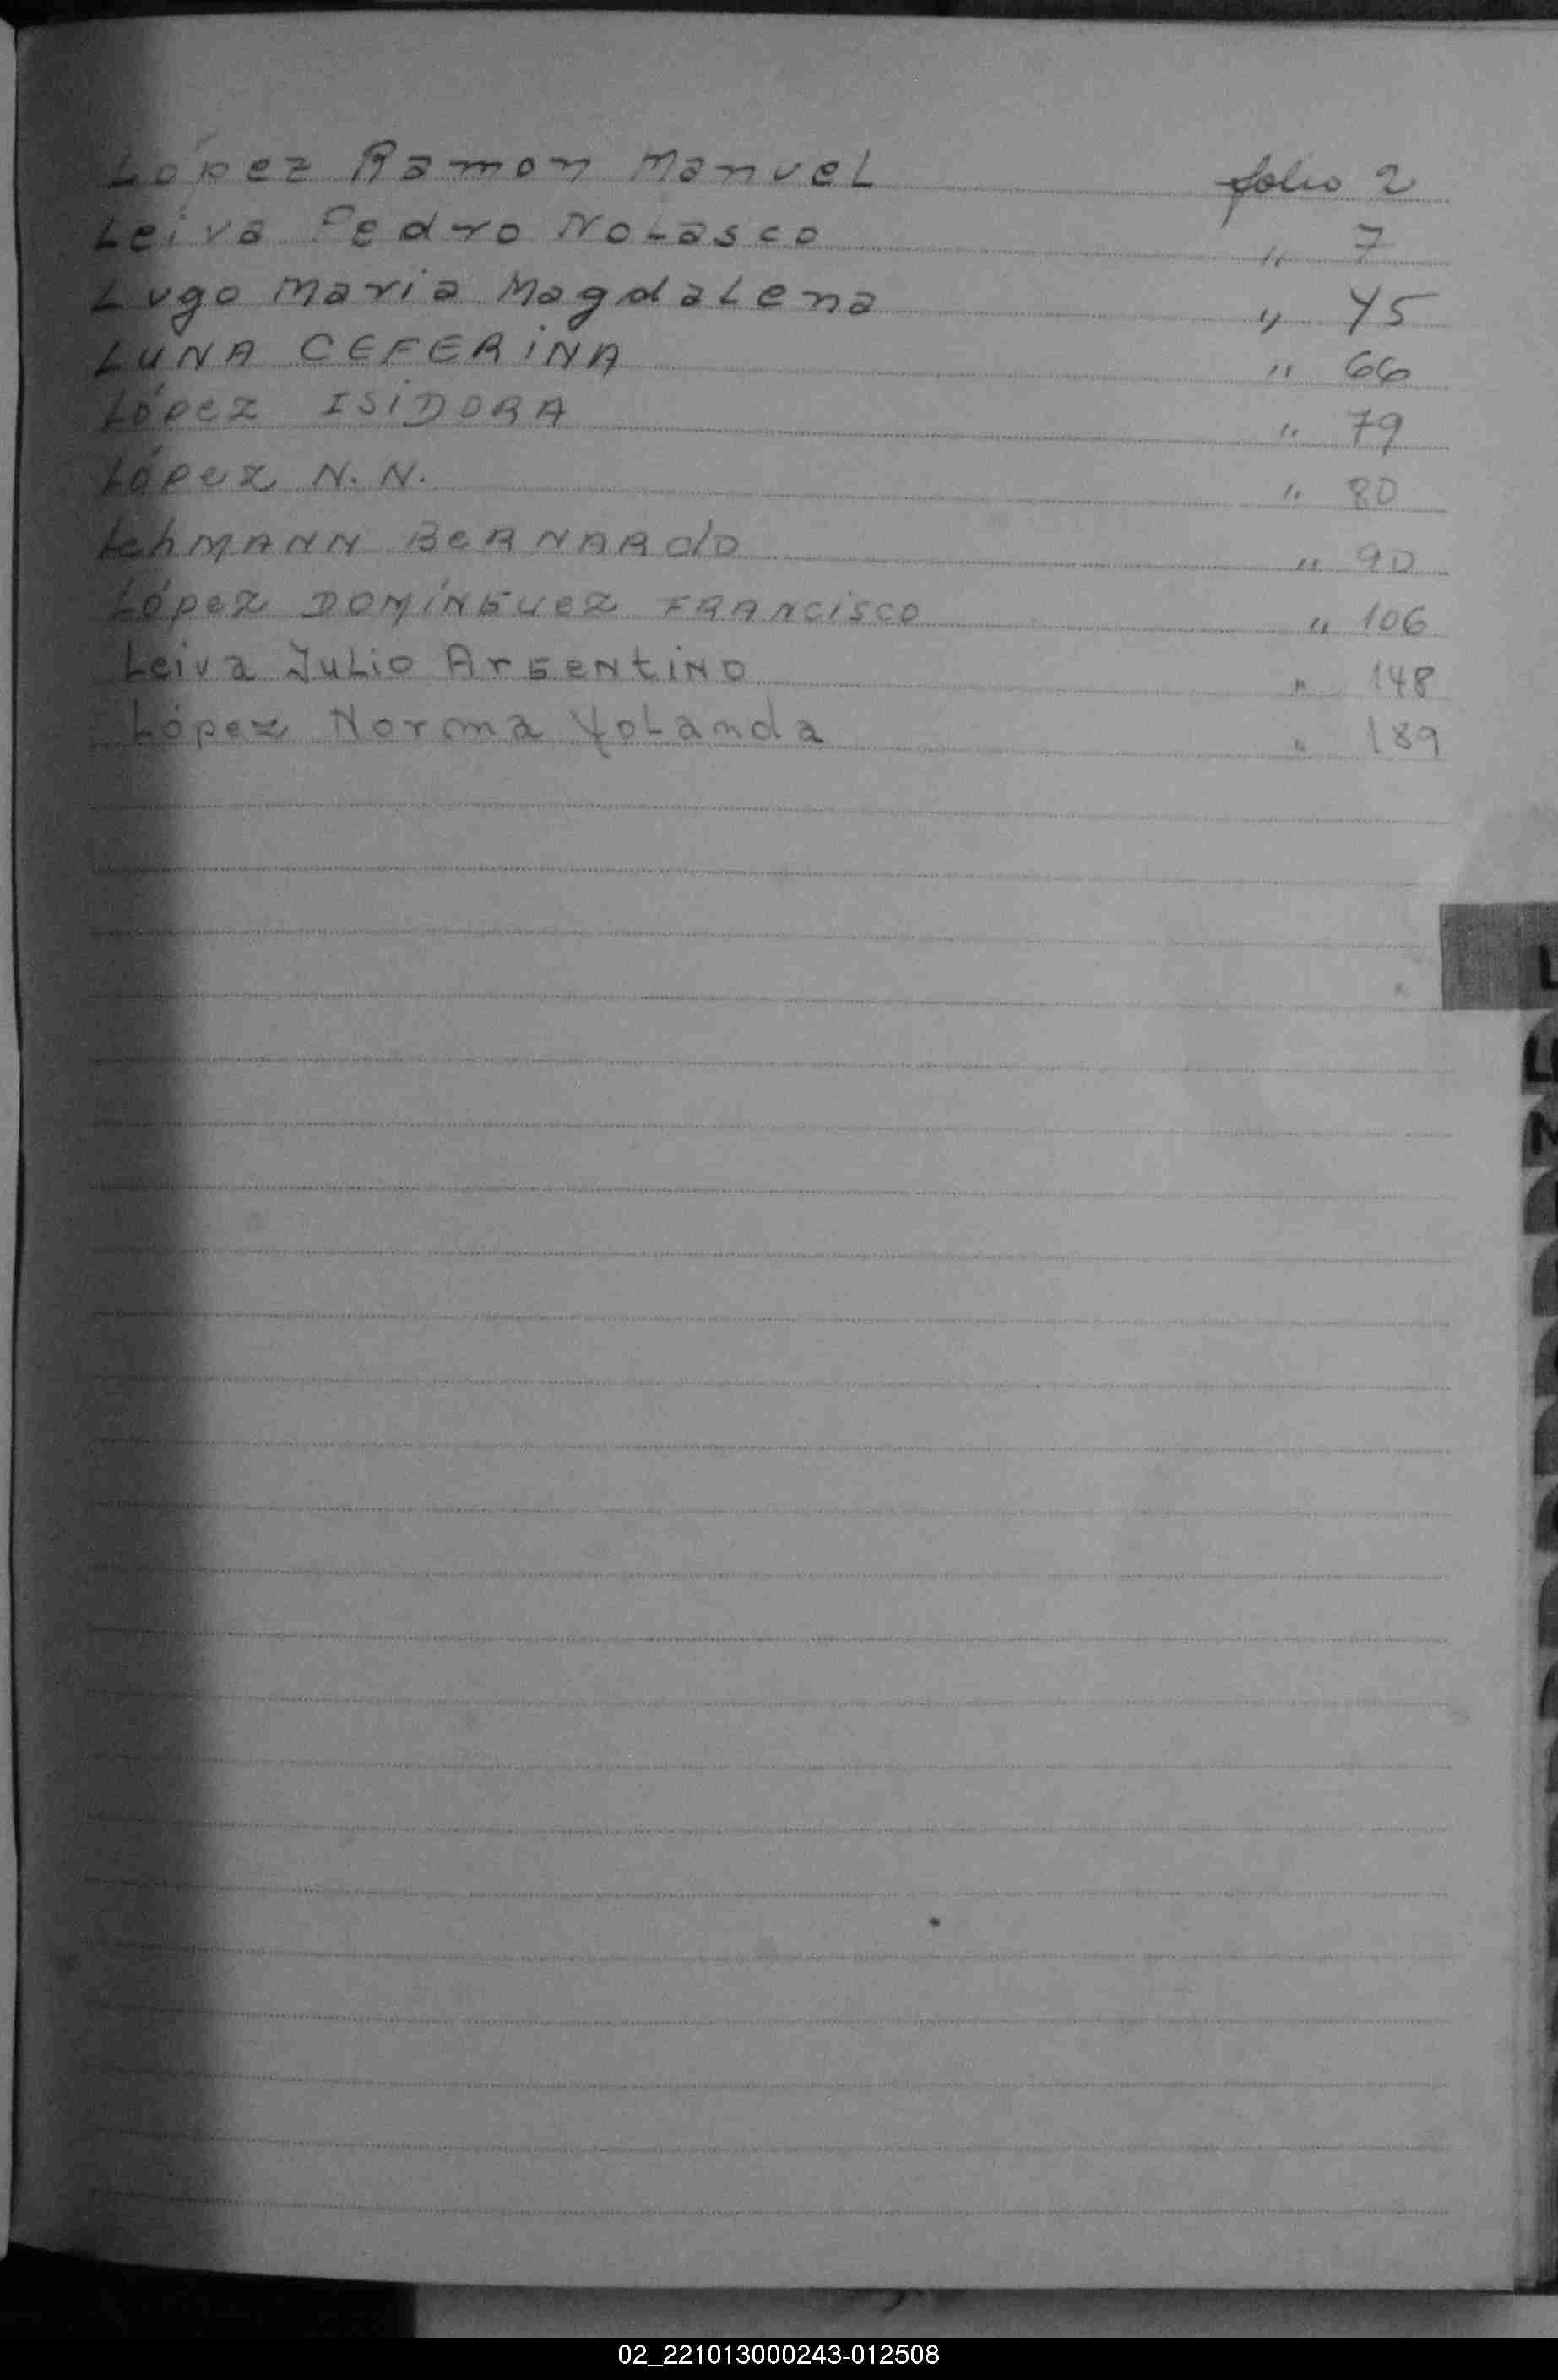 López Ramon Manuel folio 2
Leiva Pedro Nolasco " 7
Lugo Maria Magdalena " 45
LUNA CEFERINA " 66
López ISIDORA " 79
López N. N. " 80
LehMANN BeRNARdo " 90
López DOMÍNGuez FRANCISCO " 106
Leiva Julio Argentino " 148
López Norma Yolanda " 189
L
02_221013000243-012508